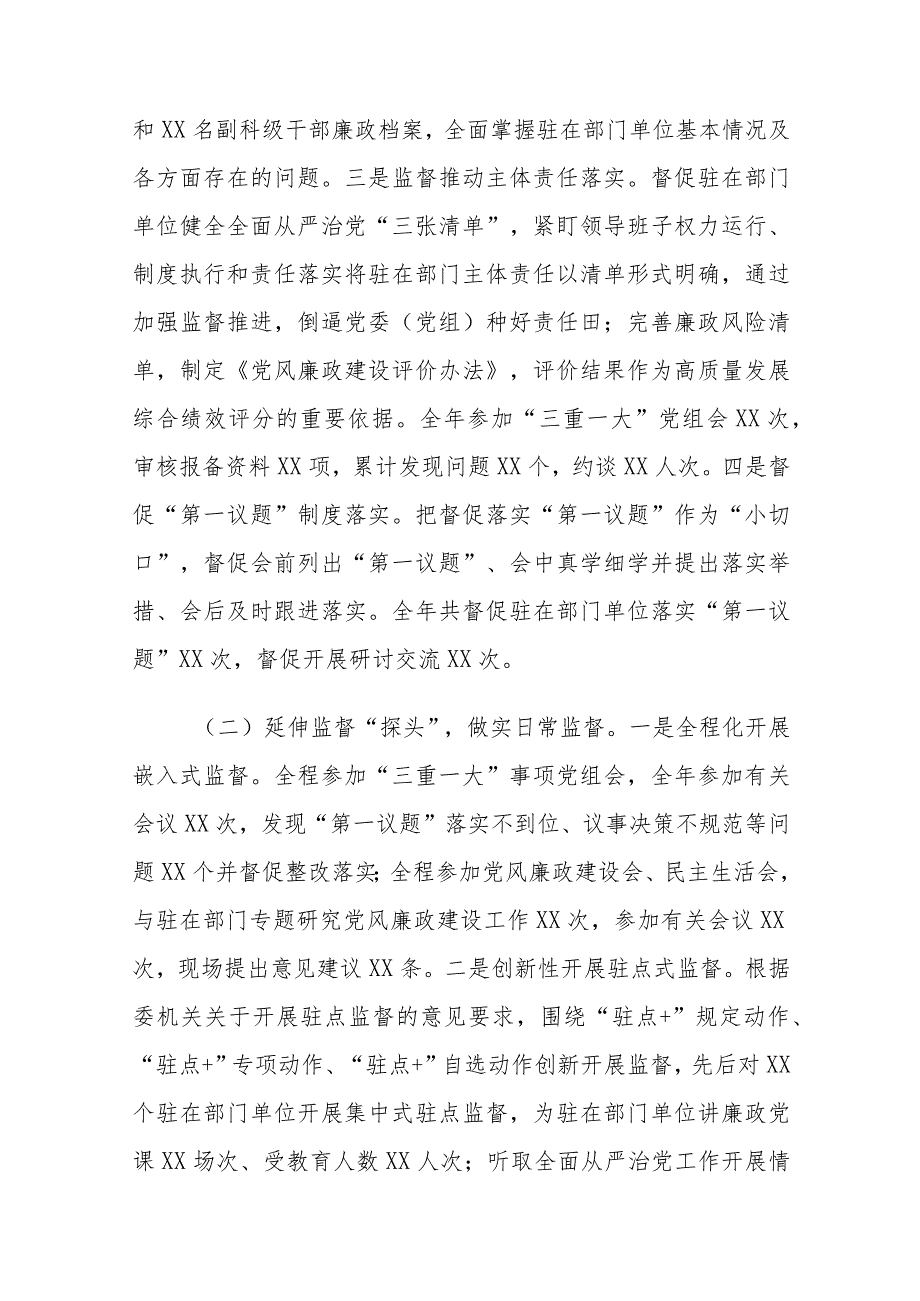 和XX名副科级干部廉政档案，全面掌握驻在部门单位基本情况及
各方面存在的问题。三是监督推动主体责任落实。督促驻在部门
单位健全全面从严治党“三张清单”，紧盯领导班子权力运行、
制度执行和责任落实将驻在部门主体责任以清单形式明确，通过
加强监督推进，倒逼党委（党组）种好责任田；完善廉政风险清
单，制定《党风廉政建设评价办法》，评价结果作为高质量发展
综合绩效评分的重要依据。全年参加“三重一大”党组会XX次，
审核报备资料XX项，累计发现问题XX个，约谈XX人次。四是督
促“第一议题”制度落实。把督促落实“第一议题”作为“小切
口”，督促会前列出“第一议题”、会中真学细学并提出落实举
措、会后及时跟进落实。全年共督促驻在部门单位落实“第一议
题”XX次，督促开展研讨交流XX次。
（二）延伸监督“探头”，做实日常监督。一是全程化开展
嵌入式监督。全程参加“三重一大”事项党组会，全年参加有关
会议XX次，发现“第一议题”落实不到位、议事决策不规范等问
题XX个并督促整改落实；全程参加党风廉政建设会、民主生活会，
与驻在部门专题研究党风廉政建设工作XX次，参加有关会议XX
次，现场提出意见建议XX条。二是创新性开展驻点式监督。根据
委机关关于开展驻点监督的意见要求，围绕“驻点+”规定动作、
“驻点+”专项动作、“驻点+”自选动作创新开展监督，先后对XX
个驻在部门单位开展集中式驻点监督，为驻在部门单位讲廉政党
课XX场次、受教育人数XX人次；听取全面从严治党工作开展情